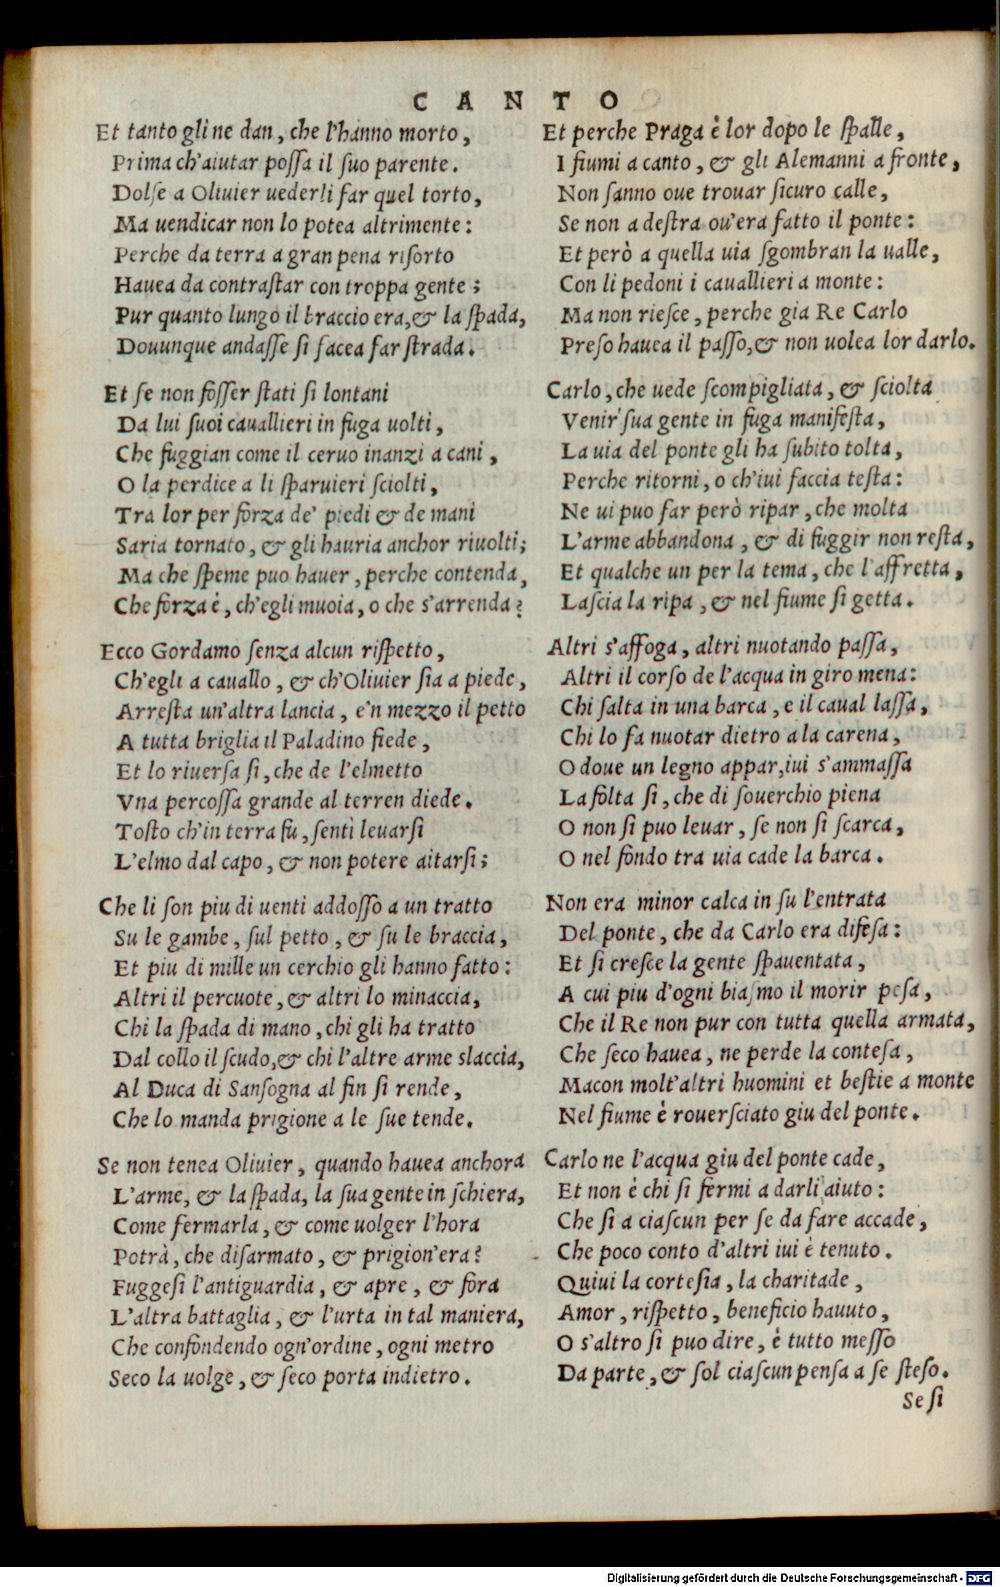 CANTO
Et tanto gli ne dan, che l'hanno morto,
Prima ch'aiutar possa il suo parente.
Dolse a Oliuier uederli far quel torto,
Ma uendicar non lo potea altrimente:
Perche da terra a gran pena risorto
Hauea da contrastar con troppa gente;
Pur quanto lungo il braccio era, & la spada,
Douunque andasse si facea far strada.
Et se non fosser stati si lontani
Da lui suoi cauallieri in fuga uolti,
Che fuggian come il ceruo inanzi a cani,
O la perdice a li sparuieri sciolti,
Tra lor per forza de' piedi & de mani
Saria tornato, & gli hauria anchor riuolti;
Ma che speme puo hauer, perche contenda,
Che forza è, ch'egli muoia, o che s'arrenda?
Ecco Gordamo senza alcun rispetto,
Ch'egli a cauallo, & ch'Oliuier sia a piede,
Arresta un'altra lancia, e'n mezzo il petto
A tutta briglia il Paladino fiede,
Et lo riuersa si, che de l'elmetto
Vna percossa grande al terren diede.
Tosto ch'in terra fu, sentì leuarsi
L'elmo dal capo, & non potere aitarsi;
Che li son piu di uenti addosso a un tratto
Su le gambe, sul petto, & su le braccia,
Et piu di mille un cerchio gli hanno fatto:
Altri il percuote, & altri lo minaccia,
Chi la spada di mano, chi gli ha tratto
Dal collo il scudo, & chi l'altre arme slaccia,
Al Duca di Sansogna al fin si rende,
Che lo manda prigione a le sue tende.
Se non tenea Oliuier, quando hauea anchora
L'arme, & la spada, la sua gente in schiera,
Come fermarla, & come uolger l'hora
Potrà, che disarmato, & prigion'era?
Fuggesi l'antiguardia, & apre, & fora
L'altra battaglia, & l'urta in tal maniera,
Che confondendo ogn'ordine, ogni metro
Seco la uolge, & seco porta indietro.
Et perche Praga è lor dopo le spalle,
I fiumi a canto, & gli Alemanni a fronte,
Non sanno oue trouar sicuro calle,
Se non a destra ou'era fatto il ponte:
Et però a quella uia sgombran la ualle,
Con li pedoni i cauallieri a monte:
Ma non riesce, perche gia Re Carlo
Preso hauea il passo, & non uolea lor darlo.
Carlo, che uede scompigliata, & sciolta
Venir sua gente in fuga manifesta,
La uia del ponte gli ha subito tolta,
Perche ritorni, o ch'iui faccia testa:
Ne ui puo far però ripar, che molta
L'arme abbandona, & di fuggir non resta,
Et qualche un per la tema, che l'affretta,
Lascia la ripa, & nel fiume si getta.
Altri s'affoga, altri nuotando passa,
Altri il corso de l'acqua in giro mena:
Chi salta in una barca, e il caual lassa,
Chi lo fa nuotar dietro a la carena,
O doue un legno appar, iui s'ammassa
La folta si, che di souerchio piena
O non si puo leuar, se non si scarca,
O nel fondo tra uia cade la barca.
Non era minor calca in su l'entrata
Del ponte, che da Carlo era difesa:
Et si cresce la gente spauentata,
A cui piu d'ogni biasmo il morir pesa,
Che il Re non pur con tutta quella armata,
Che seco hauea, ne perde la contesa,
Ma con molt'altri huomini et bestie a monte
Nel fiume è rouersciato giu del ponte.
Carlo ne l'acqua giu del ponte cade,
Et non è chi si fermi a darli aiuto:
Che si a ciascun per se da fare accade,
Che poco conto d'altri iui è tenuto.
Quiui la cortesia, la charitade,
Amor, rispetto, beneficio hauuto,
O s'altro si puo dire, è tutto messo
Da parte, & sol ciascun pensa a se steso.
Se si
Digitalisierung gefördert durch die Deutsche Forschungsgemeinschaft - DFG